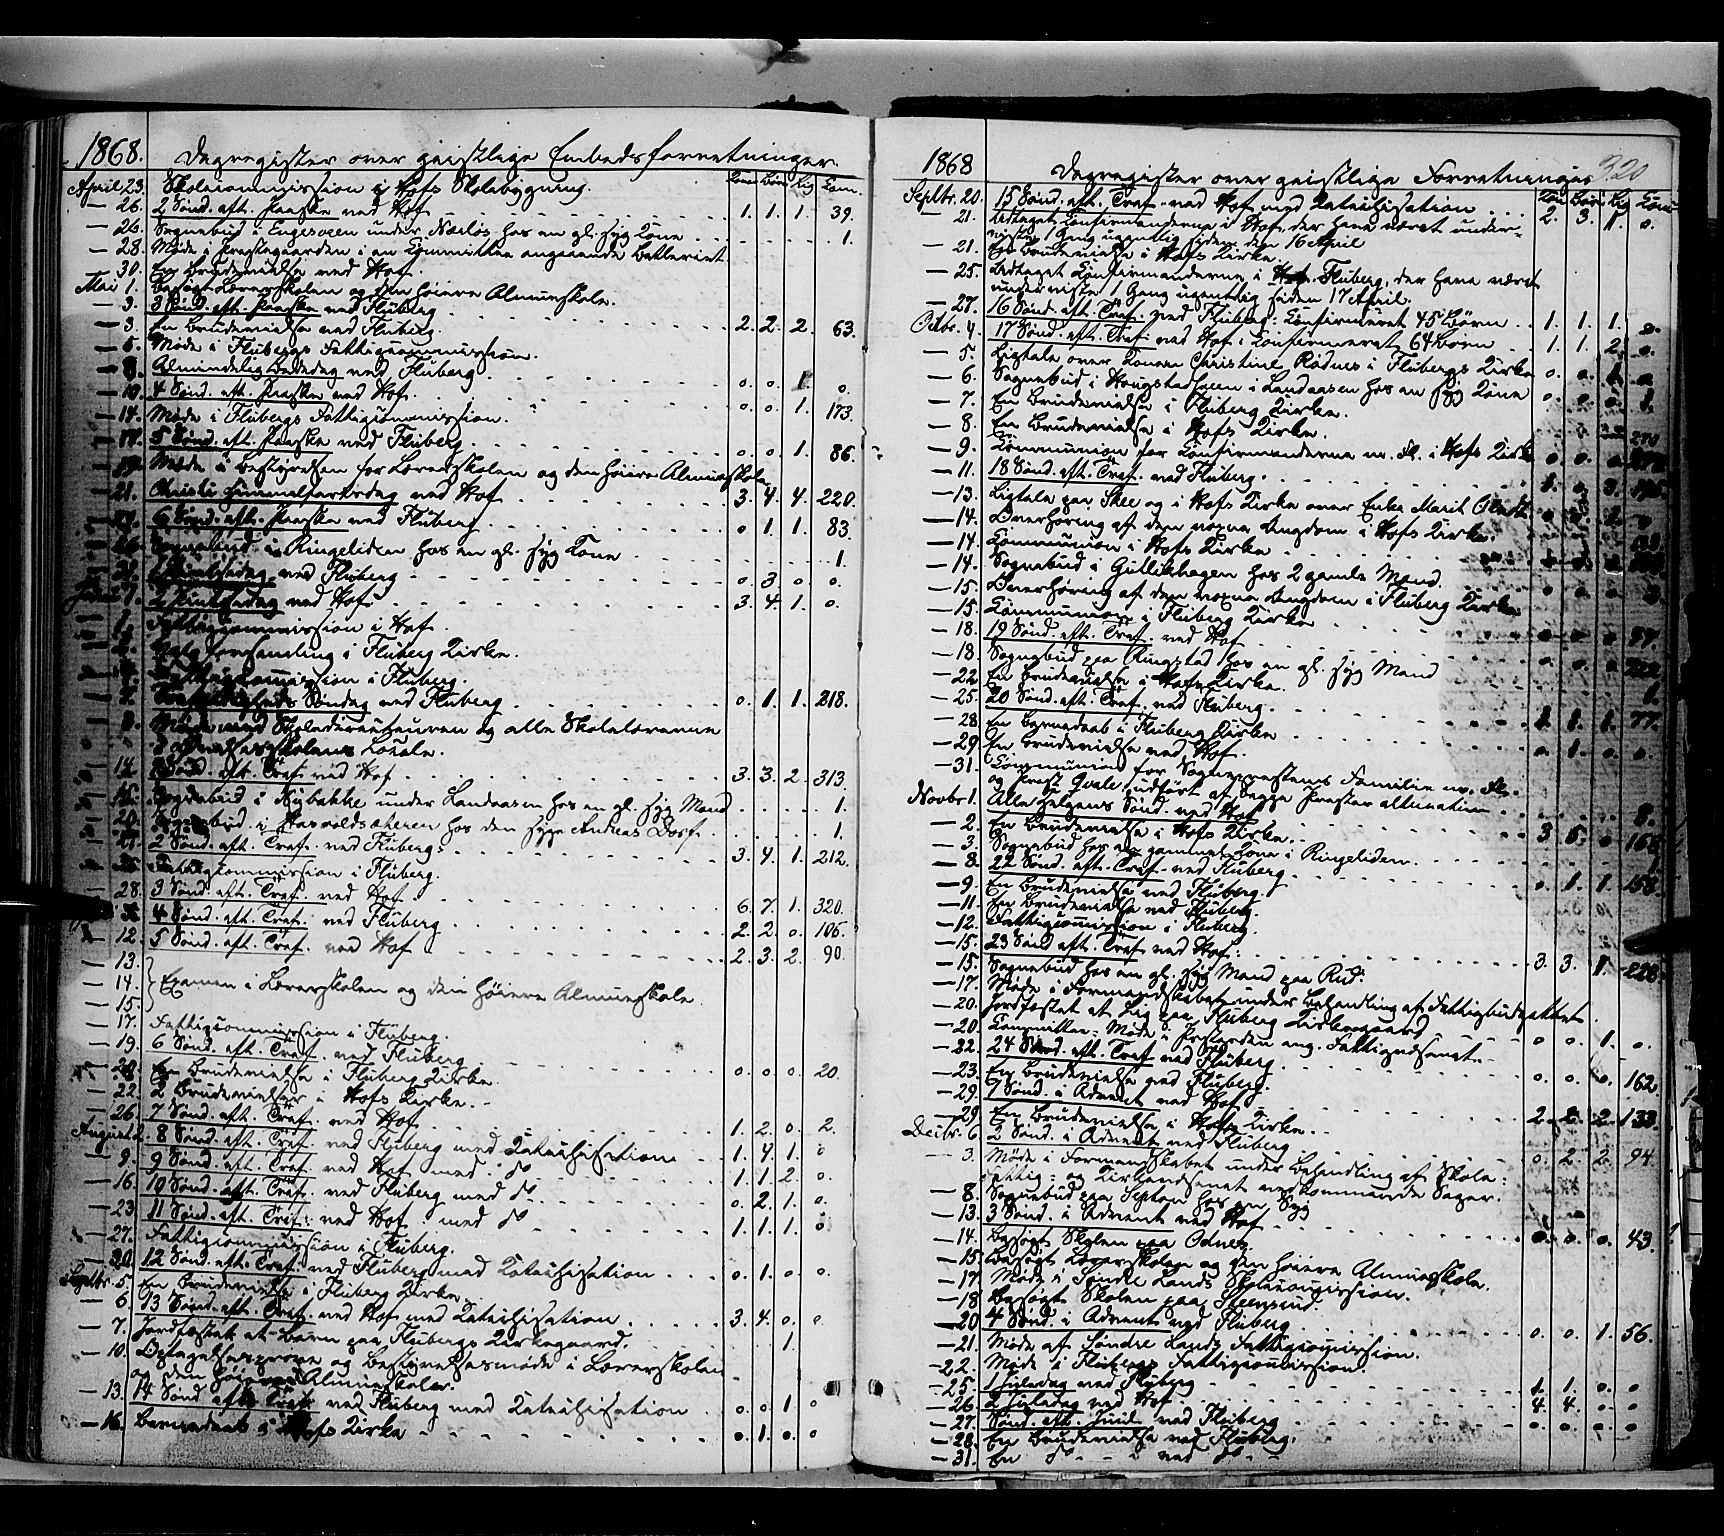 1868. Dagregister over geistlige Embedsforretninger.
Koner Børn Lig Com.
April 23. Skolecommission i Hofs Skolebygning.
— 26. 2 Sønd. eft. Paaske ved Hof 1. 1. 1. 39.
— 26. Sognebud i Engesveen under Næsløs hos en gl. syg Kone 1.
— 28. Møde i Prestegaarden i en Committee angaaende Betleriet.
— 30. En Brudevielse ved Hof.
Mai 1. Besøgt Lærerskolen og den høiere Almueskole.
— 3. 3 Sønd. eft. Paaske ved Fluberg 2. 2. 2. 63.
— 3. En Brudevielse ved Fluberg.
— 5. Møde i Flubergs Fattigcommission.
— 8. Almindelig Bededag ved Fluberg. 0. 0. 1. 0.
— 10. 4 Sønd. eft. Paaske ved Hof. 0. 0. 1. 173.
— 14. Møde i Flubergs Fattigcommission.
— 17. 5 Sønd. eft. Paaske ved Fluberg. 0. 0. 1. 86.
— 19. Møde i Bestyrelsen for Lærerskolen og den høiere Almueskole
— 21. Christi Himmelfartsdag ved Hof 3. 4. 4. 220.
6 Sønd. eft. Paaske ved Fluberg 0 1. 1. 83.
Sognebud i Ringeliden hos en gl. syg Kone 1.
— 31. 1 Pintsedag ved Fluberg 0. 3. 0. 0.
Juni 1. 2 Pintsedag ved Hof 3. 4. 1. 0.
Fattigcommission i Hof.
Valgforsamling i Fluberg Kirke.
Fattigcommission i Fluberg.
7. Trefoldigheds Søndag ved Fluberg 0. 1. 1. 218.
Møde med Skoledirecteuren og alle Skolelærerne
i Lærerskolens Locale.
14. 1 Sønd. eft. Tref. ved Hof 3. 3. 2. 313.
Sognebud i Nybakke under Landaasen hos en gl. syg Mand 1.
20. Sognebud i Hasvoldseteren hos den syge Andreas 1.
21. 2 Sønd. eft. Tref. ved Fluberg. 3. 4. 1. 212.
Fattigcommission i Fluberg.
28. 3 Sønd. eft. Tref. ved Hof 6. 7. 1. 320.
4 Sønd. eft. Tref. ved Fluberg 2. 2. 0. 106.
— 12. 5 Sønd. eft. Tref. ved Hof 2. 3. 2. 90.
— 13.
— 14. Examen i Lærerskolen og den høiere Almueskole.
— 15.
— 17. Fattigcommission i Fluberg.
— 19. 6 Sønd. eft. Tref. ved Fluberg 0. 0. 0. 20.
En Brudevielse i Fluberg Kirke.
— 22. 2 Brudevielser i Hofs Kirke.
— 26. 7 Sønd. eft. Tref. ved Hof 1. 2. 0. 2.
August 2. 8 Sønd. eft. Tref. ved Fluberg med Katechisation 1. 4. 1. 0
— 9. 9 Sønd. eft. Tref. ved Hof med do 1. 1. 2. 0
— 16. 10 Sønd. eft. Tref. ved Fluberg med do 0. 2. 1. 0.
— 23. 11 Sønd. eft. Tref. ved Hof med do 1. 1. 1. 0
— 27. Fattigcommission i Fluberg.
— 30. 12 Sønd. eft. Tref. ved Fluberg med Katechisation 0. 1. 0. 0.
Septbr 5. En Brudevielse i Fluberg Kirke.
— 6. 13 Sønd. eft. Tref. ved Hof med Katechisation 3. 4. 0. 0.
— 7. Jordfæstet et Barn paa Flubergs Kirkegaard. 1.
— 10. Optagelsesprøve og Bestyrelsesmøde i Lærerskolen
og den høiere Almueskole.
— 13. 14 Sønd. eft. Tref. ved Fluberg med Katechisation 0. 0 1 0
— 16. Barnedaab i Hofs Kirke 0. 1. 0. 0
1868 Dagregister over geistlige Forretninger 320
Kon Børn Lig Com
Septbr. 20. 15 Sønd. eft. Tref. ved Hof med Katechisation 2. 3. 1. 0.
— 21. Antaget Confirmanderne i Hof, der have været under-
viste 1 Gang ugentlig siden den 16 April
— 21. En Brudevielse i Hofs Kirke.
— 25. Antaget Confirmanderne i Fluberg, der have været
underviste 1 Gang ugentlig siden 17 April.
— 27. 16 Sønd. eft. Tref. ved Fluberg. Confirmeret 45 Børn 1. 1. 1. 0.
Octbr. 4. 17 Sønd. eft. Tref. ved Hof. Confirmeret 64 Børn 1. 1. 2. 0.
— 5. Ligtale over Konen Christine Rødnes i Flubergs Kirke 0. 0. 1. 0
— 6. Sognebud i Haugstadsveen i Landaasen hos en syg Kone 0. 0. 0. 1.
— 7. En Brudevielse i Fluberg Kirke.
— 8. En Brudevielse i Hofs Kirke.
— 9. Communion for Confirmanderne m. fl. i Hofs Kirke
— 11. 18 Sønd. eft. Tref. ved Fluberg.
— 13. Ligtale paa Skee og i Hofs Kirke over Enke Marit
— 14. Overhøring af den voxne Ungdom i Hofs Kirke.
— 14. Communion i Hofs Kirke
— 14. Sognebud i Gullikhagen hos 2 gamle Mænd.
— 15. Overhøring af den voxne Ungdom i Fluberg Kirke
— 15. Communion i Fluberg Kirke 0. 0. 0. 57.
— 18. 19 Sønd. eft. Tref. ved Hof
— 18. Sognebud paa Ringstad hos en gl. syg Mand 1.
— 22. En Brudevielse i Hofs Kirke.
— 25. 20 Sønd. eft. Tref. ved Fluberg. 1. 1. 1. 77.
— 28. En Barnedaab i Fluberg Kirke 0. 1. 0. 0.
— 29. En Brudevielse ved Hof
— 31. Communion for Sogneprestens Familie m. fl.
og Prest Hvale, udført af begge Prester alternativ 8.
Novbr 1. Alle Helgens Sønd. ved Hof 3 5. 0 168
— 2. En Brudevielse i Hofs Kirke.
— 3. Sognebud hos en gammel Kone i Ringeliden. 1
— 8. 22 Sønd. eft. Tref. ved Fluberg 0. 1. 1. 158.
— 9. En Brudevielse ved Fluberg.
— 11. En Brudevielse ved Fluberg.
— 12. Fattigcommission i Fluberg.
— 15. 23 Sønd. eft. Tref. ved Hof. 3. 3. 1. 228.
— 15. Sognebud hos en gl. syg Mand paa Rud.
— 17. Møde i Formandskabet under Behandling af Fattigbudgettet.
— 20. Jordfæstet et Lig paa Fluberg Kirkegaard 0. 0. 1. 0.
— 20. Committee-Møde i Prestegaarden ang. Fattigvæsenet.
— 22. 24 Sønd. eft. Tref. ved Fluberg 0. 0. 0. 162.
— 23. En Brudevielse ved Fluberg.
— 29. 1 Sønd. i Advent ved Hof 2. 2. 2. 133.
— 29. En Brudevielse i Hofs Kirke.
Decbr. 6 2 Sønd. i Advent ved Fluberg 0. 2. 2. 94.
— 3. Møde i Formandskabet under Behandling af Skole-
Fattig- og Kirkevæsenet vedkommende Sager.
— 8. Sognebud paa hos en syg
— 13. 3 Sønd. i Advent ved Hof 0. 0. 0. 43.
— 14. Besøgt Skolen paa Odnes.
— 15. Besøgt Lærerskolen og den høiere Almueskole.
— 17. Møde i Søndre Lands Skolecommission.
— 18. Besøgt Skolen paa Steensrud.
— 20 4 Sønd. i Advent ved Fluberg 0. 0. 1. 56.
— 21. Møde af Søndre Lands Fattigcommission.
— 22. Møde i Flubergs Fattigcommission.
— 25. 1 Juledag ved Fluberg 1. 1. 0. 0
— 26. 2 Juledag ved Hof 4. 4. 0. 0
— 27. Sønd. eft. Juul ved Fluberg 0. 0. 0. 0
— 28. En Brudevielse ved Fluberg.
— 31. En do ved do